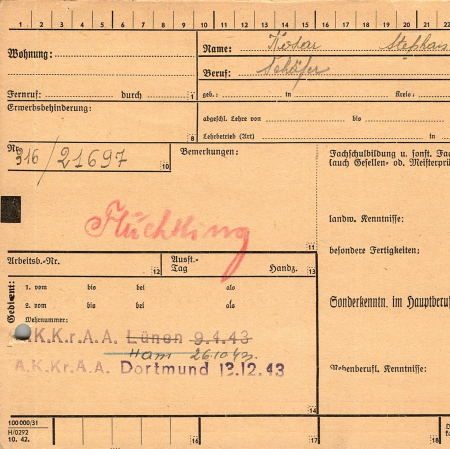 1 2 3 4 5 6 7 8 9 10 11 12 13 14 15 16 17 18 19 20 21 22
Wohnung:
Name: Kosar Stephan
Beruf: Schäfer
Fernruf: durch 1
geb.: in Kreis:
Erwerbsbehinderung: 8
abgeschl. Lehre von bis
Lehrbetrieb (Art) in
Nr. 316/21697 10
Bemerkungen:
Fachschulbildung u. sonst. Fa
(auch Gesellen- od. Meisterprü
Flüchtling
11
landw. Kenntnisse:
besondere Fertigkeiten:
Arbeitsb.-Nr. 12
Ausst.-
Tag Handz. 13
Gedient:
1. vom bis bei als
2. vom bis bei als
Wehrnummer:
Sonderkenntn. im Hauptberuf
A.K.Kr.A.A. Lünen 9.4.43
Ham 26.10.43.
A.K.Kr.A.A. Dortmund 13.12.43
Nebenberufl. Kenntnisse:
14
100 000/31
H/0292
10. 42.
16 17 18